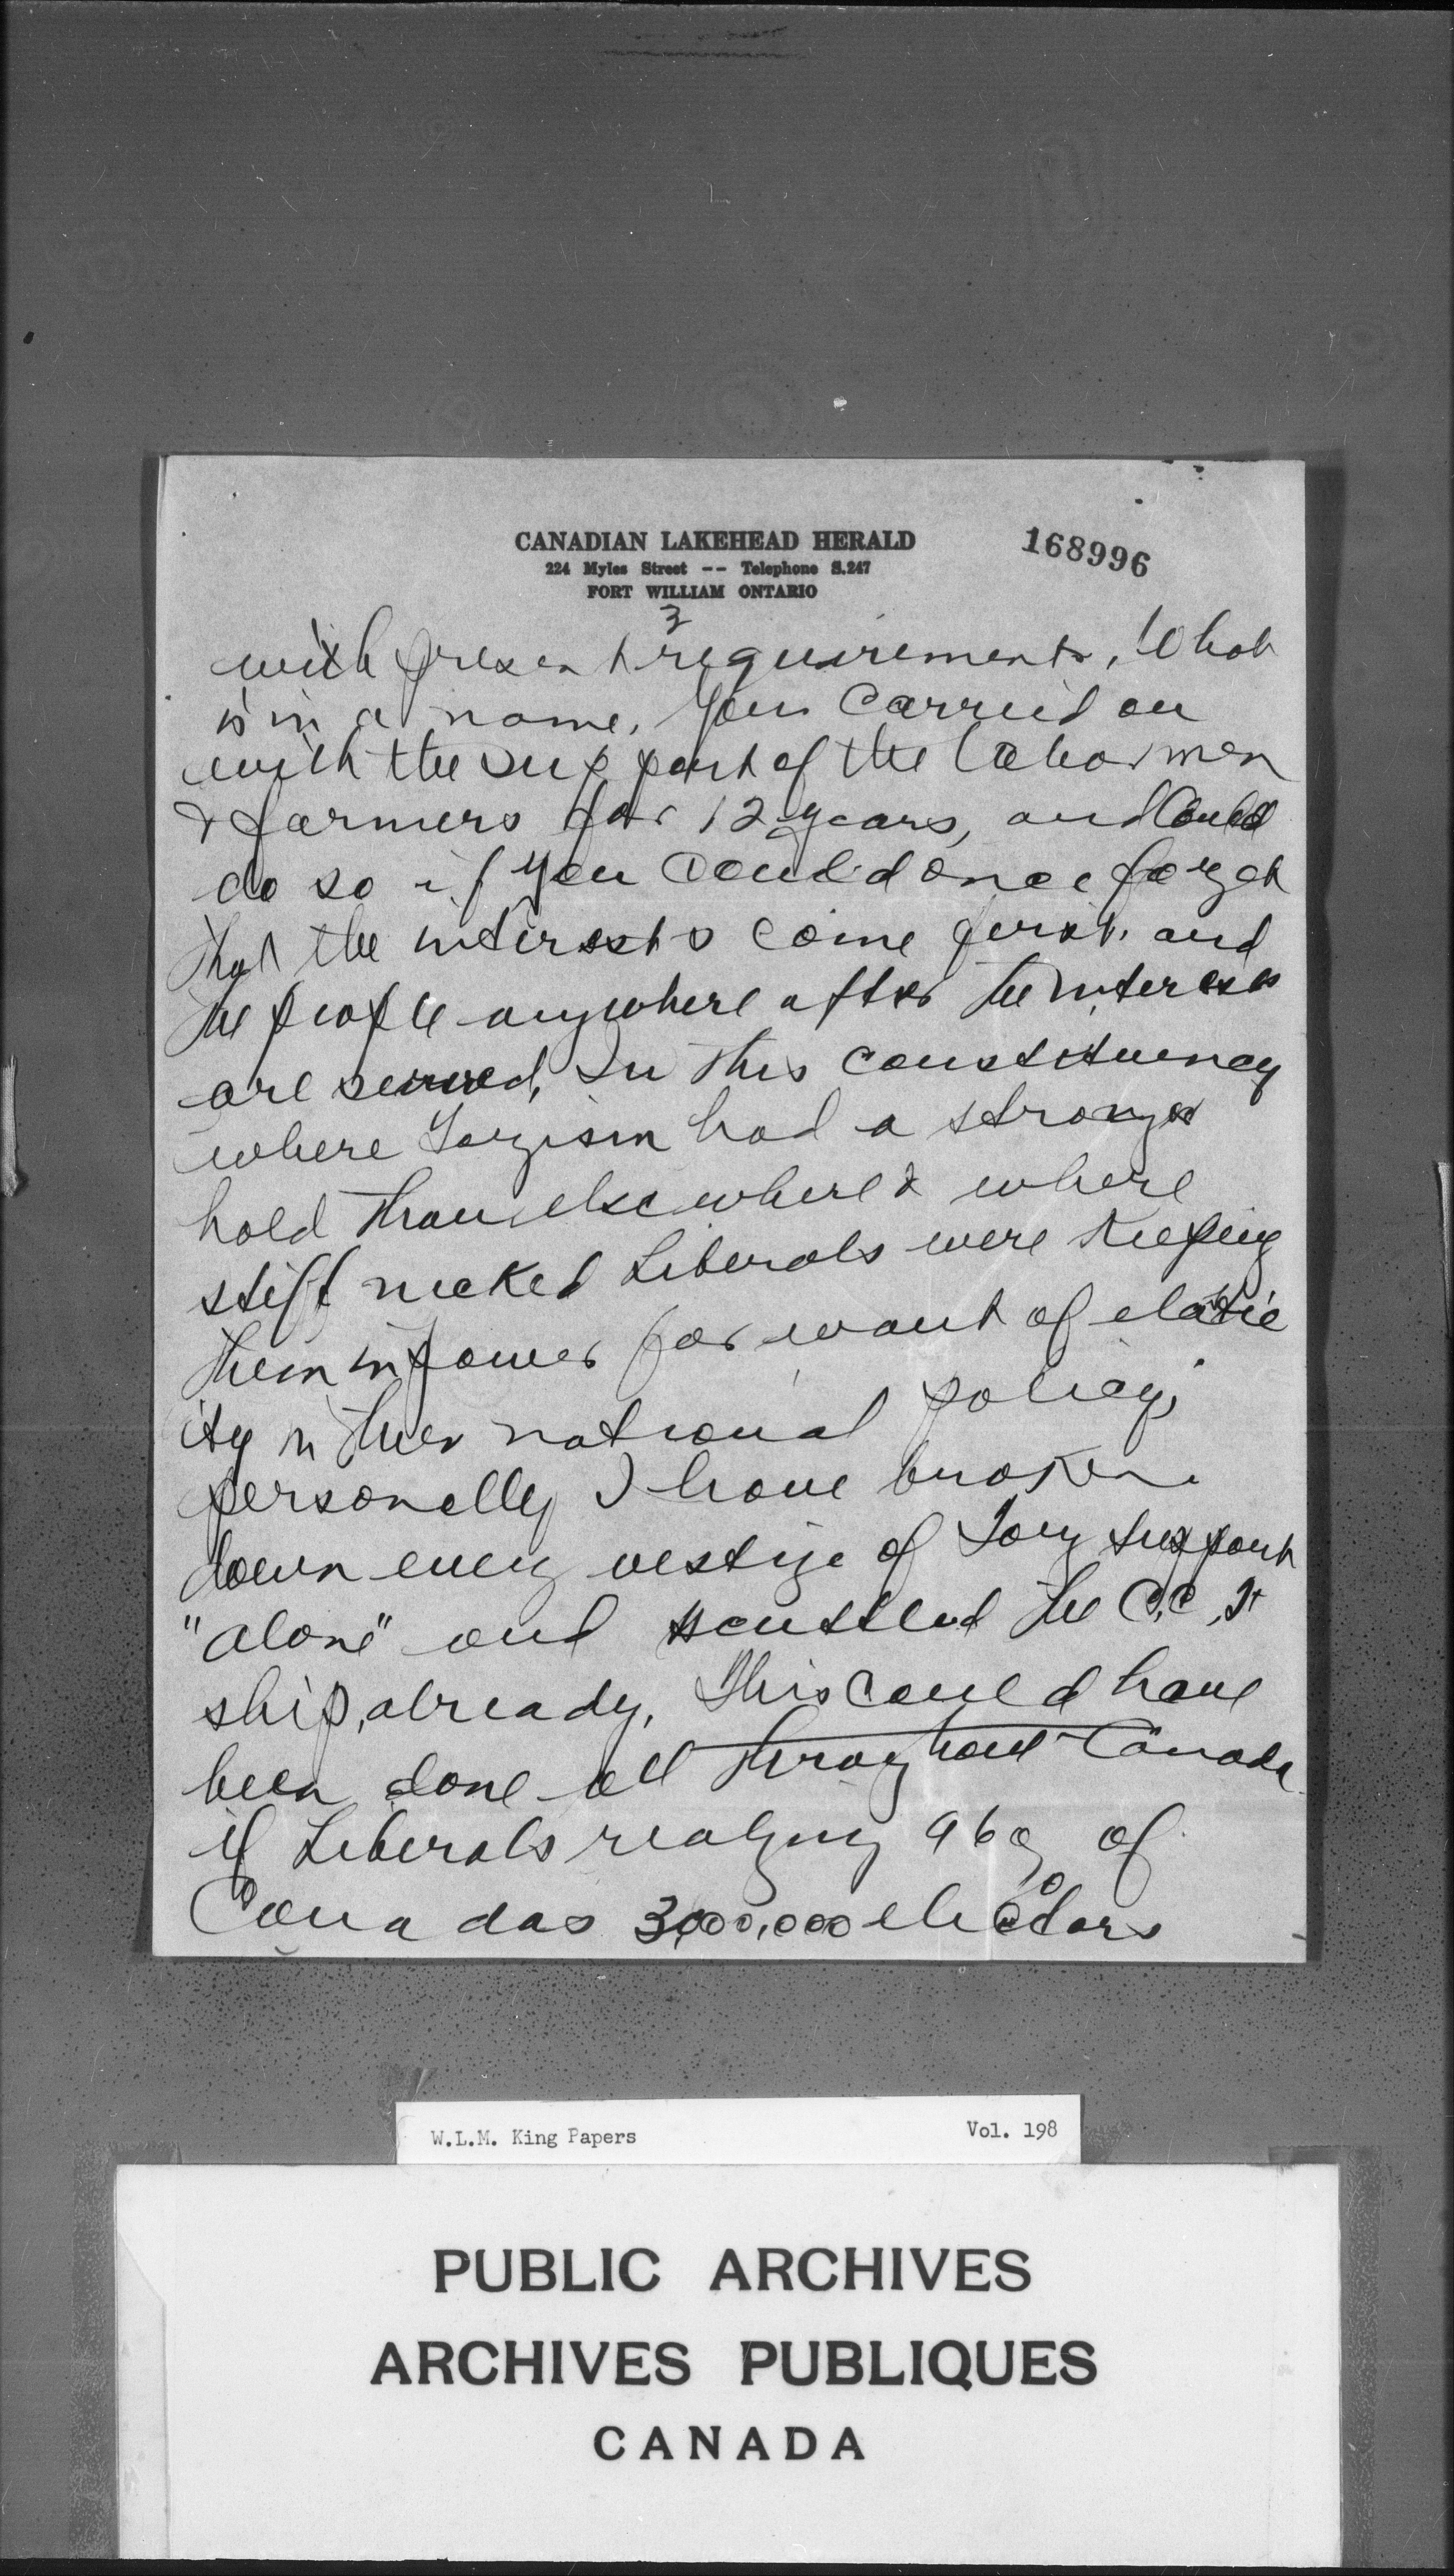 CANADIAN LAKEHEAD HERALD
168996
224 Myles Street -- Telephone S.247
FORT WILLIAM ONTARIO
3
with present requirements, What
is in a name. You carried on
with the support of the labor men
& farmers for 12 years, and could
do so if you could once forget
that the interests come first and
the people anywhere after the interests
are served, In this constituency
where Toryism had a stronger
hold than elsewhere & where
stiff necked Liberals were keeping
them in power for want of elastic
ity in their national policy,
personally I have broken
down every vestige of Tory support
"alone" and scuttled the C.C.F.
ship, already, This could have
been done all throughout Canada
if Liberals realizing 96% of
Canadas 3,000,000 electors
W.L.M. King Papers
Vol. 198
PUBLIC ARCHIVES
ARCHIVES PUBLIQUES
CANADA